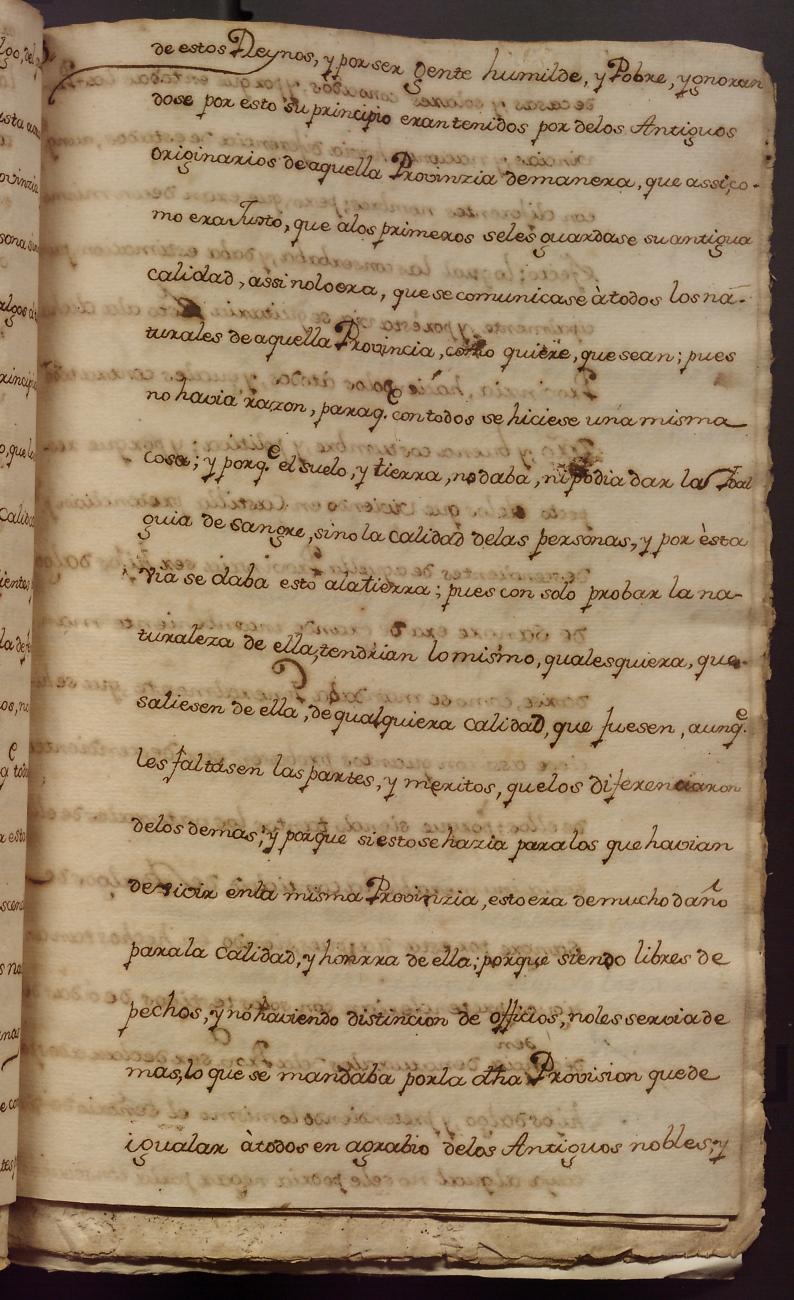 de estos Reynos, y por ser gente humilde, y Pobre, ygnoran
dose por esto su principio eran tenidos por delos Antiguos
originarios de aquella Provinzia demanera, que assi, co-
mo era Justo, que alos primeros seles guardase su antigua
calidad, assi nolo era, que se comunicase à todos los na-
turales de aquella Provincia, como quiere, que sean; pues
no havia razon, paraq.e con todos se hiciese una misma
cosa; y porq.e el suelo, y tierra, no daba, ni podia dar la Hidal
guia de sangre, sino la calidad delas personas, y por èsta
via se daba esto ala tierra; pues con solo probar la na-
turaleza de ella, tendrian lo mismo, qualesquiera, que
saliesen de ella, de qualquiera calidad, que fuesen, aunq.e
les faltasen las partes, y meritos, quelos diferenciaron
delos demas; y porque si esto se hazia para los que havian
de vivir enla misma Provinzia, esto era de mucho daño
para la calidad, y honrra de ella; porque siendo libres de
pechos, y no haviendo distincion de officios, noles servia de
mas, lo que se mandaba por la dha Provision que de
igualar à todos en agrabio delos Antiguos nobles, y